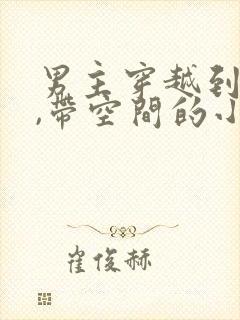 男主穿越到
,带空間的小
崔俊赫